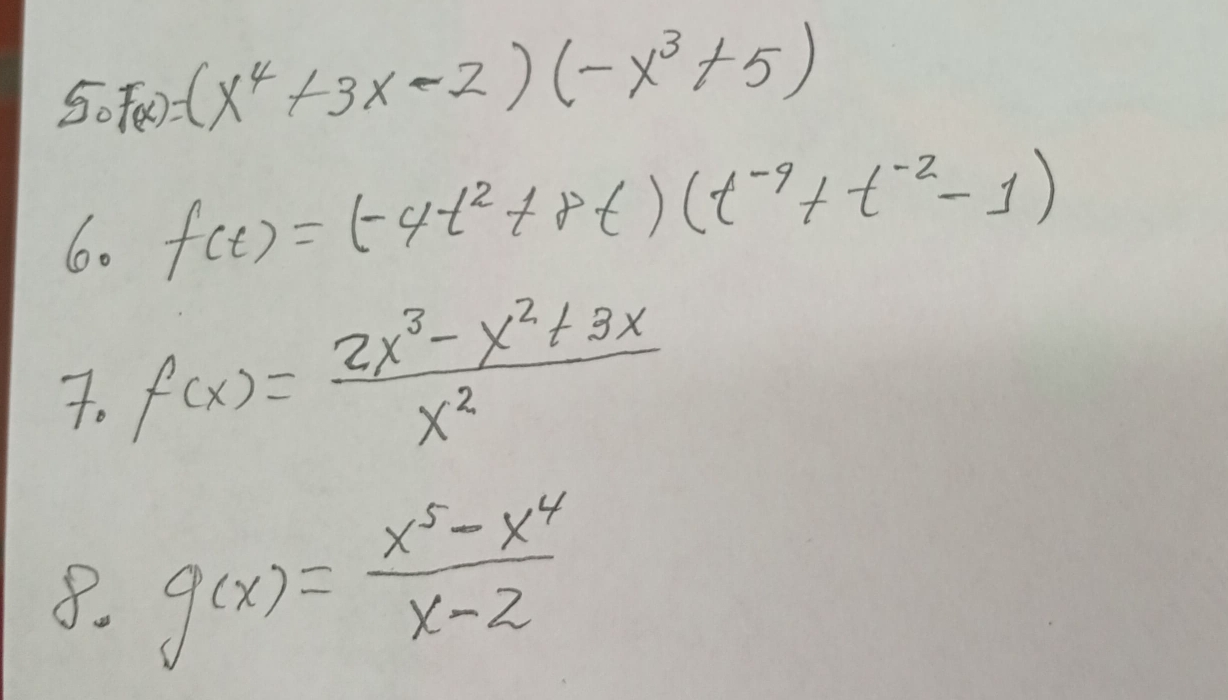 5. F(x)=(x⁴+3x-2)(-x³+5)
6. f(t)=(-4t²+8t)(t⁻⁹+t⁻²-1)
7. f(x)= (2x³-x²+3x)/x²
8. g(x)= (x⁵-x⁴)/(x-2)